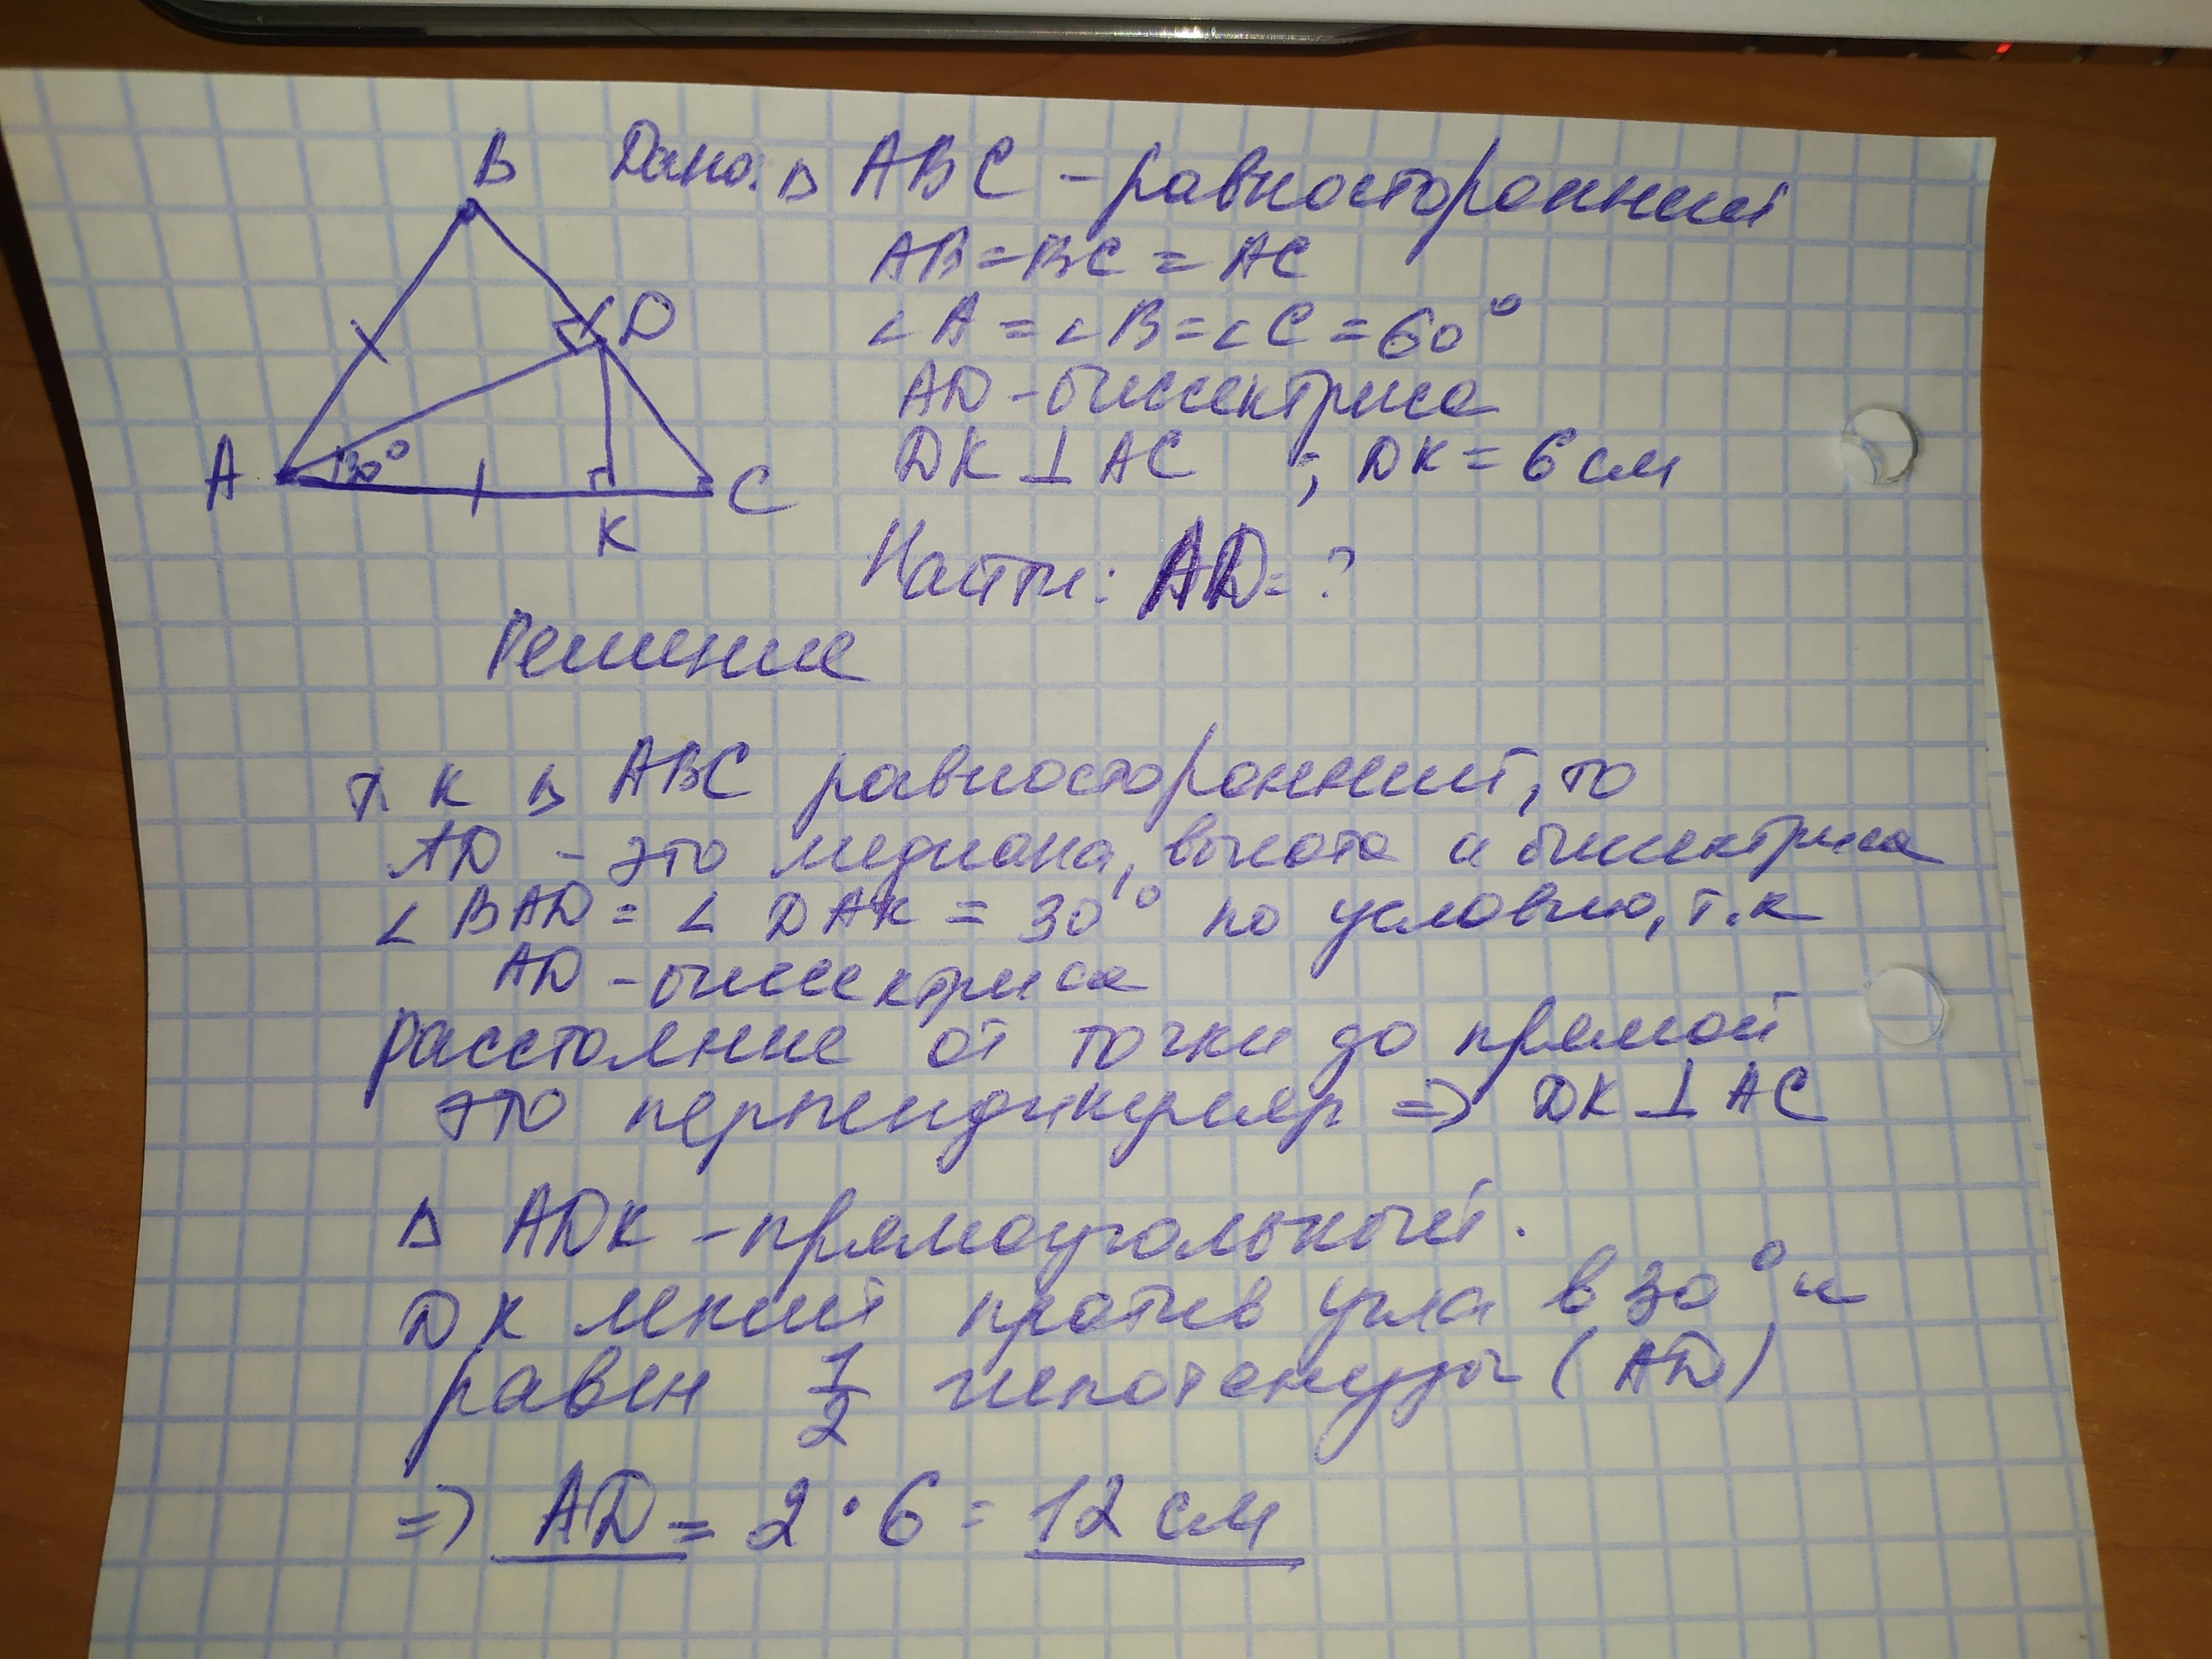 B
D
A
30°
C
K
Дано: Δ ABC - равносторонний
AB = BC = AC
∠A = ∠B = ∠C = 60°
AD - биссектриса
DK ⊥ AC ; DK = 6 см
Найти: AD = ?
Решение
т. к Δ ABC равносторонний, то
AD - это медиана, высота и биссектриса
∠ BAD = ∠ DAK = 30° по условию, т.к
AD - биссектриса
расстояние от точки до прямой
это перпендикуляр => DK ⊥ AC
Δ ADK - прямоугольный.
DK лежит против угла в 30° и
равен 1/2 гипотенузы (AD)
=> AD = 2 · 6 = 12 см